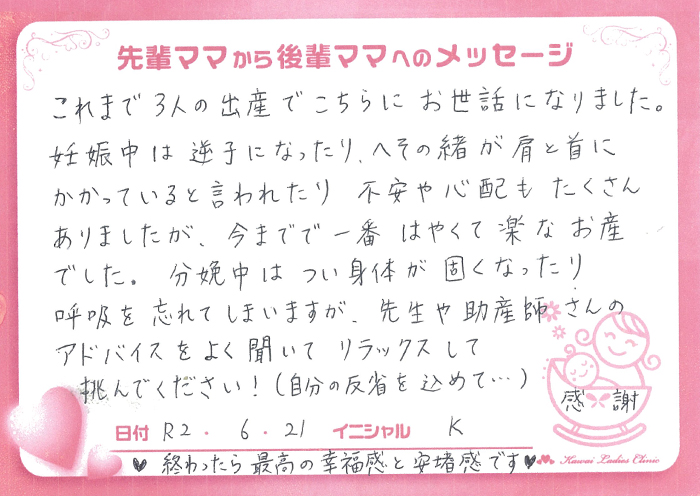 先輩ママから後輩ママへのメッセージ
これまで3人の出産でこちらにお世話になりました。
妊娠中は逆子になったり、へその緒が肩と首に
かかっていると言われたり 不安や心配もたくさん
ありましたが、今までで一番 はやくて楽なお産
でした。 分娩中は つい身体が固くなったり
呼吸を忘れてしまいますが、先生や助産師さんの
アドバイスをよく聞いて リラックスして
挑んでください！(自分の反省を込めて…)
感謝
日付 R2・6・21 イニシャル K
♥ 終わったら最高の幸福感と安堵感です♥
Kawai Ladies Clinic